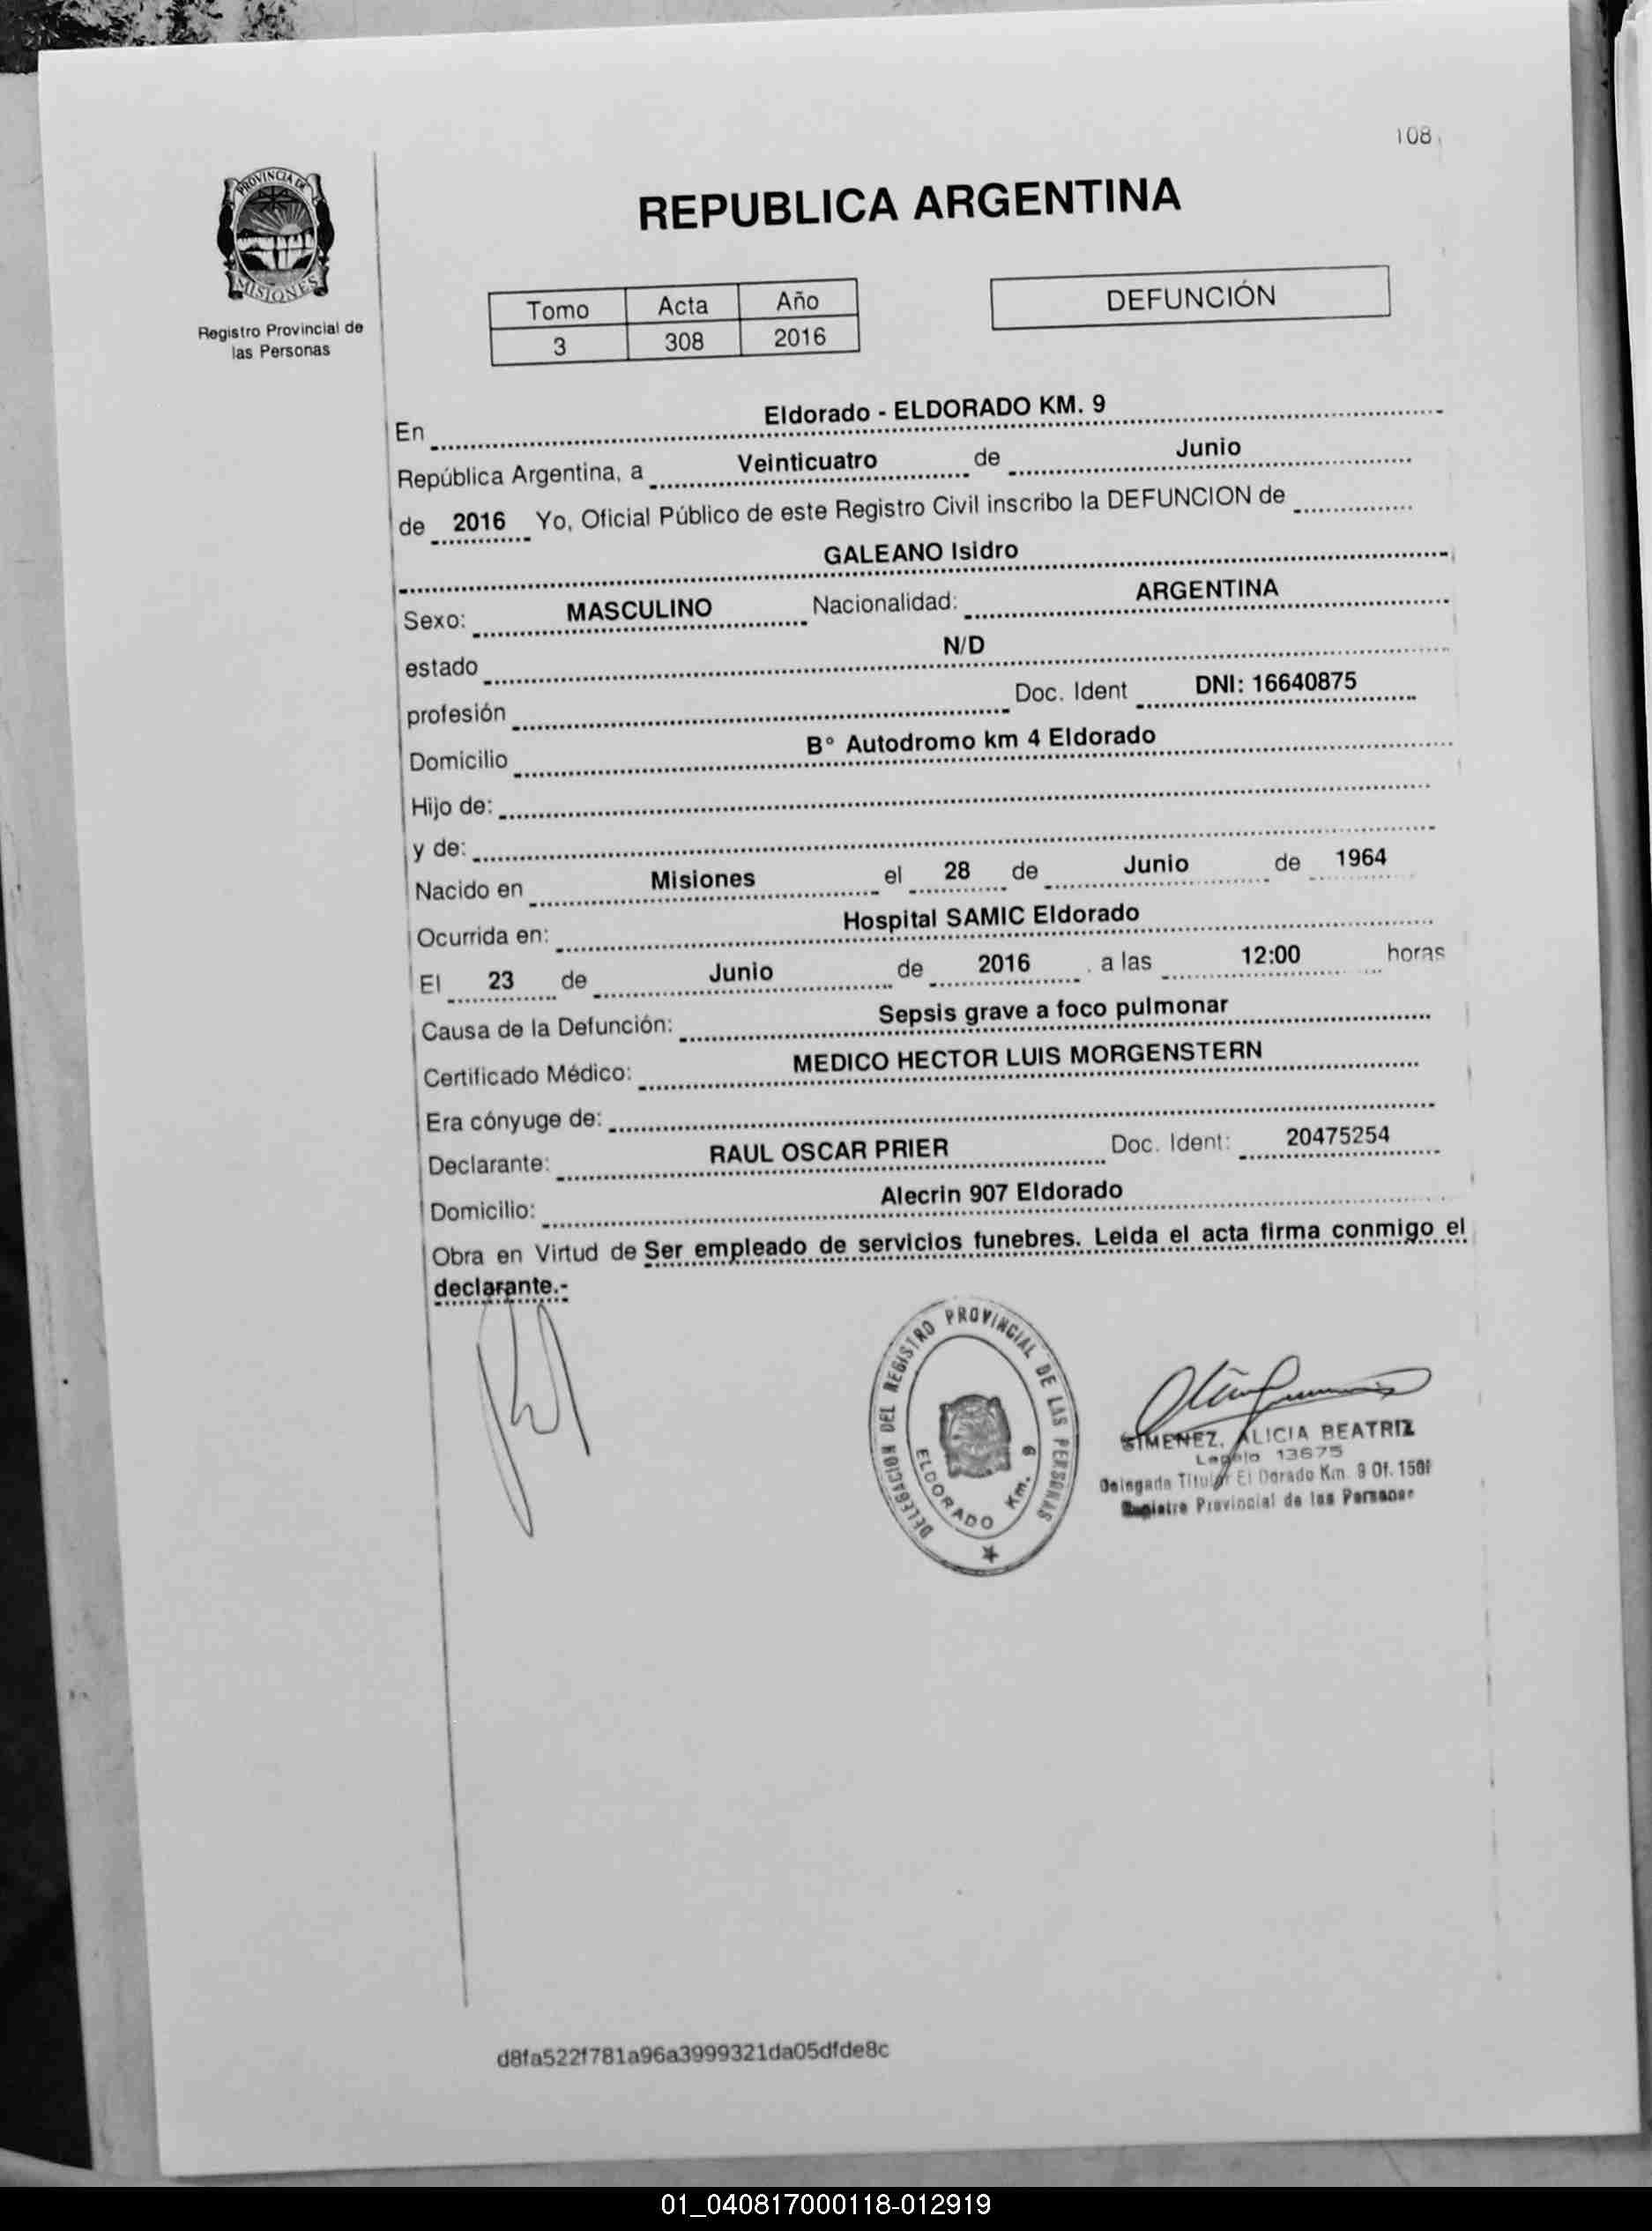 108
PROVINCIA DE
MISIONES
Registro Provincial de
las Personas
REPUBLICA ARGENTINA
Tomo Acta Año
3 308 2016
DEFUNCIÓN
En Eldorado - ELDORADO KM. 9
República Argentina, a Veinticuatro de Junio
de 2016 Yo, Oficial Público de este Registro Civil inscribo la DEFUNCION de
GALEANO Isidro
Sexo: MASCULINO Nacionalidad: ARGENTINA
estado N/D
profesión Doc. Ident DNI: 16640875
Domicilio B° Autodromo km 4 Eldorado
Hijo de:
y de:
Nacido en Misiones el 28 de Junio de 1964
Ocurrida en: Hospital SAMIC Eldorado
El 23 de Junio de 2016 a las 12:00 horas
Causa de la Defunción: Sepsis grave a foco pulmonar
Certificado Médico: MEDICO HECTOR LUIS MORGENSTERN
Era cónyuge de:
Declarante: RAUL OSCAR PRIER Doc. Ident: 20475254
Domicilio: Alecrin 907 Eldorado
Obra en Virtud de Ser empleado de servicios funebres. Leida el acta firma conmigo el
declarante.-
DELEGACION DEL REGISTRO PROVINCIAL DE LAS PERSONAS
ELDORADO Km. 9
GIMENEZ, ALICIA BEATRIZ
Legajo 13675
Delegada Titular El Dorado Km. 9 Of. 1501
Registro Provincial de las Personas
d8fa522f781a96a3999321da05dfde8c
01_040817000118-012919